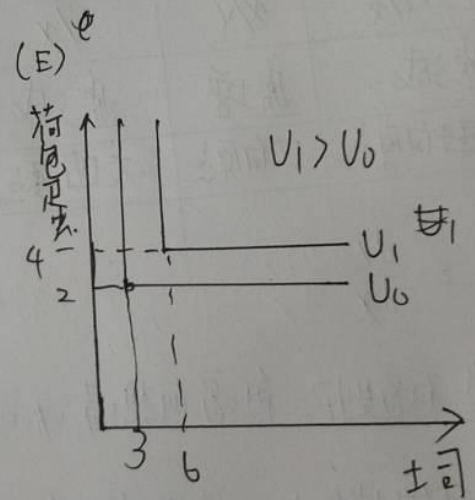 e
(E)
荷包蛋
U₁ > U₀
4
U₁
#1
2
U₀
3
6
土司